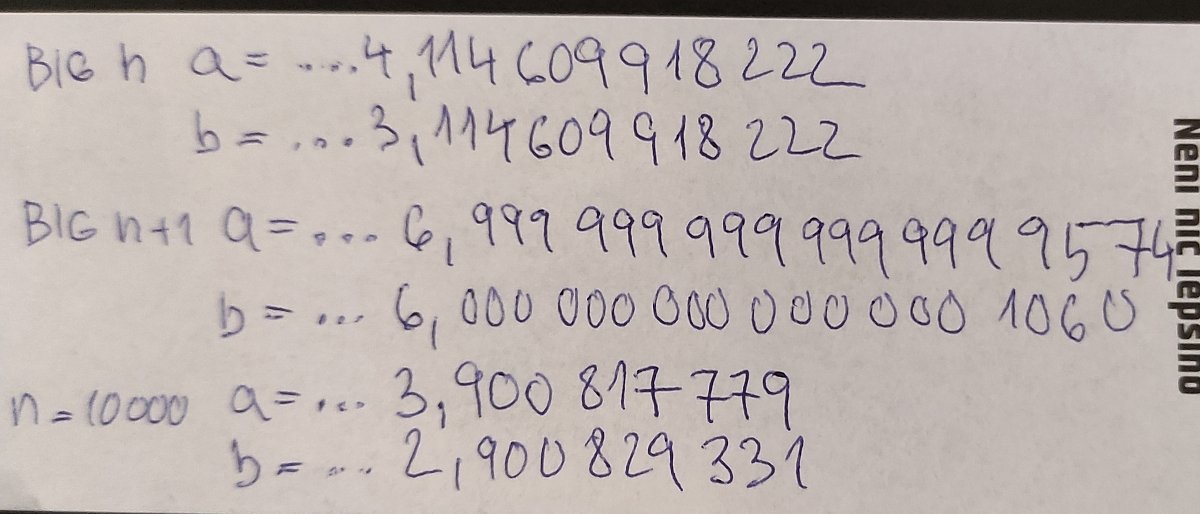 BIG n a = ....4,114609918222
b = ...3,114609918222
BIG n+1 a = ... 6,999 999 999 999 999 9574
b = ... 6,000 000 000 000 000 1060
n = 10000 a = ... 3,900 817 779
b = ... 2,900 829 331
Není nic lepšího